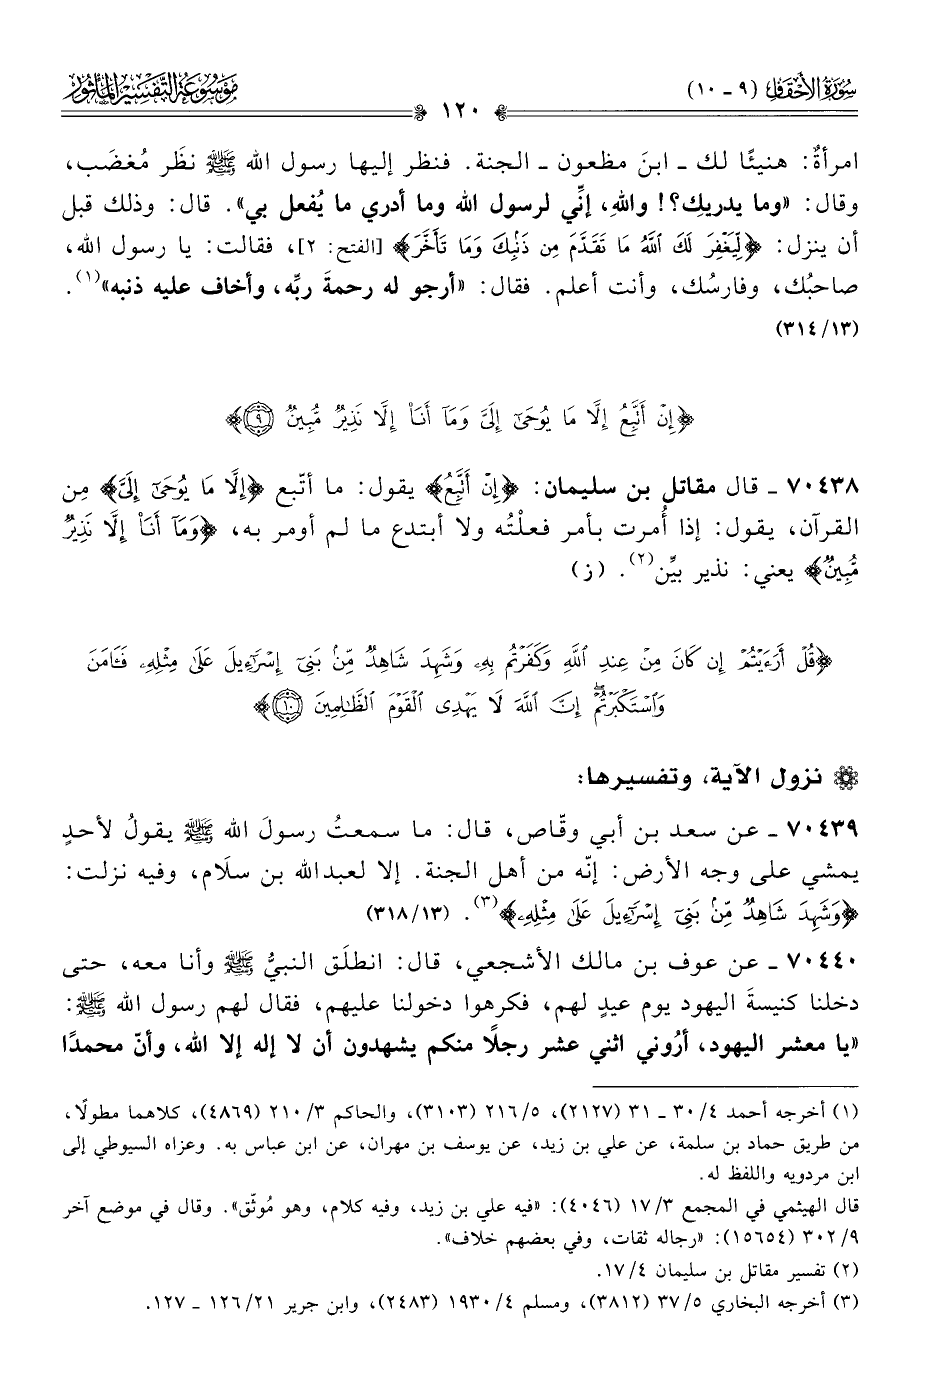 سُورَةُ الأَحْقَافِ (٩ - ١٠)
١٢٠
مَوْسُوعَةُ التَّفْسِيرِ المَأْثُورِ
امرأةٌ: هنيئًا لك ـ ابنَ مظعون ـ الجنة. فنظر إليها رسول الله ﷺ نظَر مُغضَب،
وقال: «وما يدريك؟! واللهِ، إنِّي لرسول الله وما أدري ما يُفعل بي». قال: وذلك قبل
أن ينزل: ﴿لِّيَغْفِرَ لَكَ ٱللَّهُ مَا تَقَدَّمَ مِن ذَنۢبِكَ وَمَا تَأَخَّرَ﴾ [الفتح: ٢]، فقالت: يا رسول الله،
صاحبُك، وفارسُك، وأنت أعلم. فقال: «أرجو له رحمةَ ربِّه، وأخاف عليه ذنبه»(١).
(٣١٤/١٣)
﴿إِنْ أَتَّبِعُ إِلَّا مَا يُوحَىٰٓ إِلَيَّ وَمَآ أَنَا۠ إِلَّا نَذِيرٌ مُّبِينٌ ٩﴾
٧٠٤٣٨ ـ قال مقاتل بن سليمان: ﴿إِنْ أَتَّبِعُ﴾ يقول: ما أتّبع ﴿إِلَّا مَا يُوحَىٰٓ إِلَيَّ﴾ مِن
القرآن، يقول: إذا أُمرت بأمر فعلْتُه ولا أبتدع ما لم أومر به، ﴿وَمَآ أَنَا۠ إِلَّا نَذِيرٌ
مُّبِينٌ﴾ يعني: نذير بيِّن(٢). (ز)
﴿قُلْ أَرَءَيْتُمْ إِن كَانَ مِنْ عِندِ ٱللَّهِ وَكَفَرْتُم بِهِۦ وَشَهِدَ شَاهِدٌ مِّنۢ بَنِىٓ إِسْرَٰٓءِيلَ عَلَىٰ مِثْلِهِۦ فَـَٔامَنَ
وَٱسْتَكْبَرْتُمْ ۖ إِنَّ ٱللَّهَ لَا يَهْدِى ٱلْقَوْمَ ٱلظَّـٰلِمِينَ ١٠﴾
نزول الآية، وتفسيرها:
٧٠٤٣٩ ـ عن سعد بن أبي وقّاص، قال: ما سمعتُ رسولَ الله ﷺ يقولُ لأحدٍ
يمشي على وجه الأرض: إنّه من أهل الجنة. إلا لعبدالله بن سلَام، وفيه نزلت:
﴿وَشَهِدَ شَاهِدٌ مِّنۢ بَنِىٓ إِسْرَٰٓءِيلَ عَلَىٰ مِثْلِهِۦ﴾(٣). (٣١٨/١٣)
٧٠٤٤٠ ـ عن عوف بن مالك الأشجعي، قال: انطلَق النبيُّ ﷺ وأنا معه، حتى
دخلنا كنيسةَ اليهود يوم عيدٍ لهم، فكرهوا دخولنا عليهم، فقال لهم رسول الله ﷺ:
«يا معشر اليهود، أرُوني اثني عشر رجلًا منكم يشهدون أن لا إله إلا الله، وأنّ محمدًا
(١) أخرجه أحمد ٣٠/٤ ـ ٣١ (٢١٢٧)، ٢١٦/٥ (٣١٠٣)، والحاكم ٢١٠/٣ (٤٨٦٩)، كلاهما مطولًا،
من طريق حماد بن سلمة، عن علي بن زيد، عن يوسف بن مهران، عن ابن عباس به. وعزاه السيوطي إلى
ابن مردويه واللفظ له.
قال الهيثمي في المجمع ١٧/٣ (٤٠٤٦): «فيه علي بن زيد، وفيه كلام، وهو مُوثّق». وقال في موضع آخر
٣٠٢/٩ (١٥٦٥٤): «رجاله ثقات، وفي بعضهم خلاف».
(٢) تفسير مقاتل بن سليمان ١٧/٤.
(٣) أخرجه البخاري ٣٧/٥ (٣٨١٢)، ومسلم ١٩٣٠/٤ (٢٤٨٣)، وابن جرير ١٢٦/٢١ ـ ١٢٧.